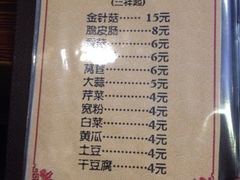 (三样起)
金针菇……15元
脆皮肠……8元
菠菜……6元
6元
莴苣……6元
大蒜……5元
芹菜……4元
宽粉……4元
白菜……4元
黄瓜……4元
土豆……4元
干豆腐……4元